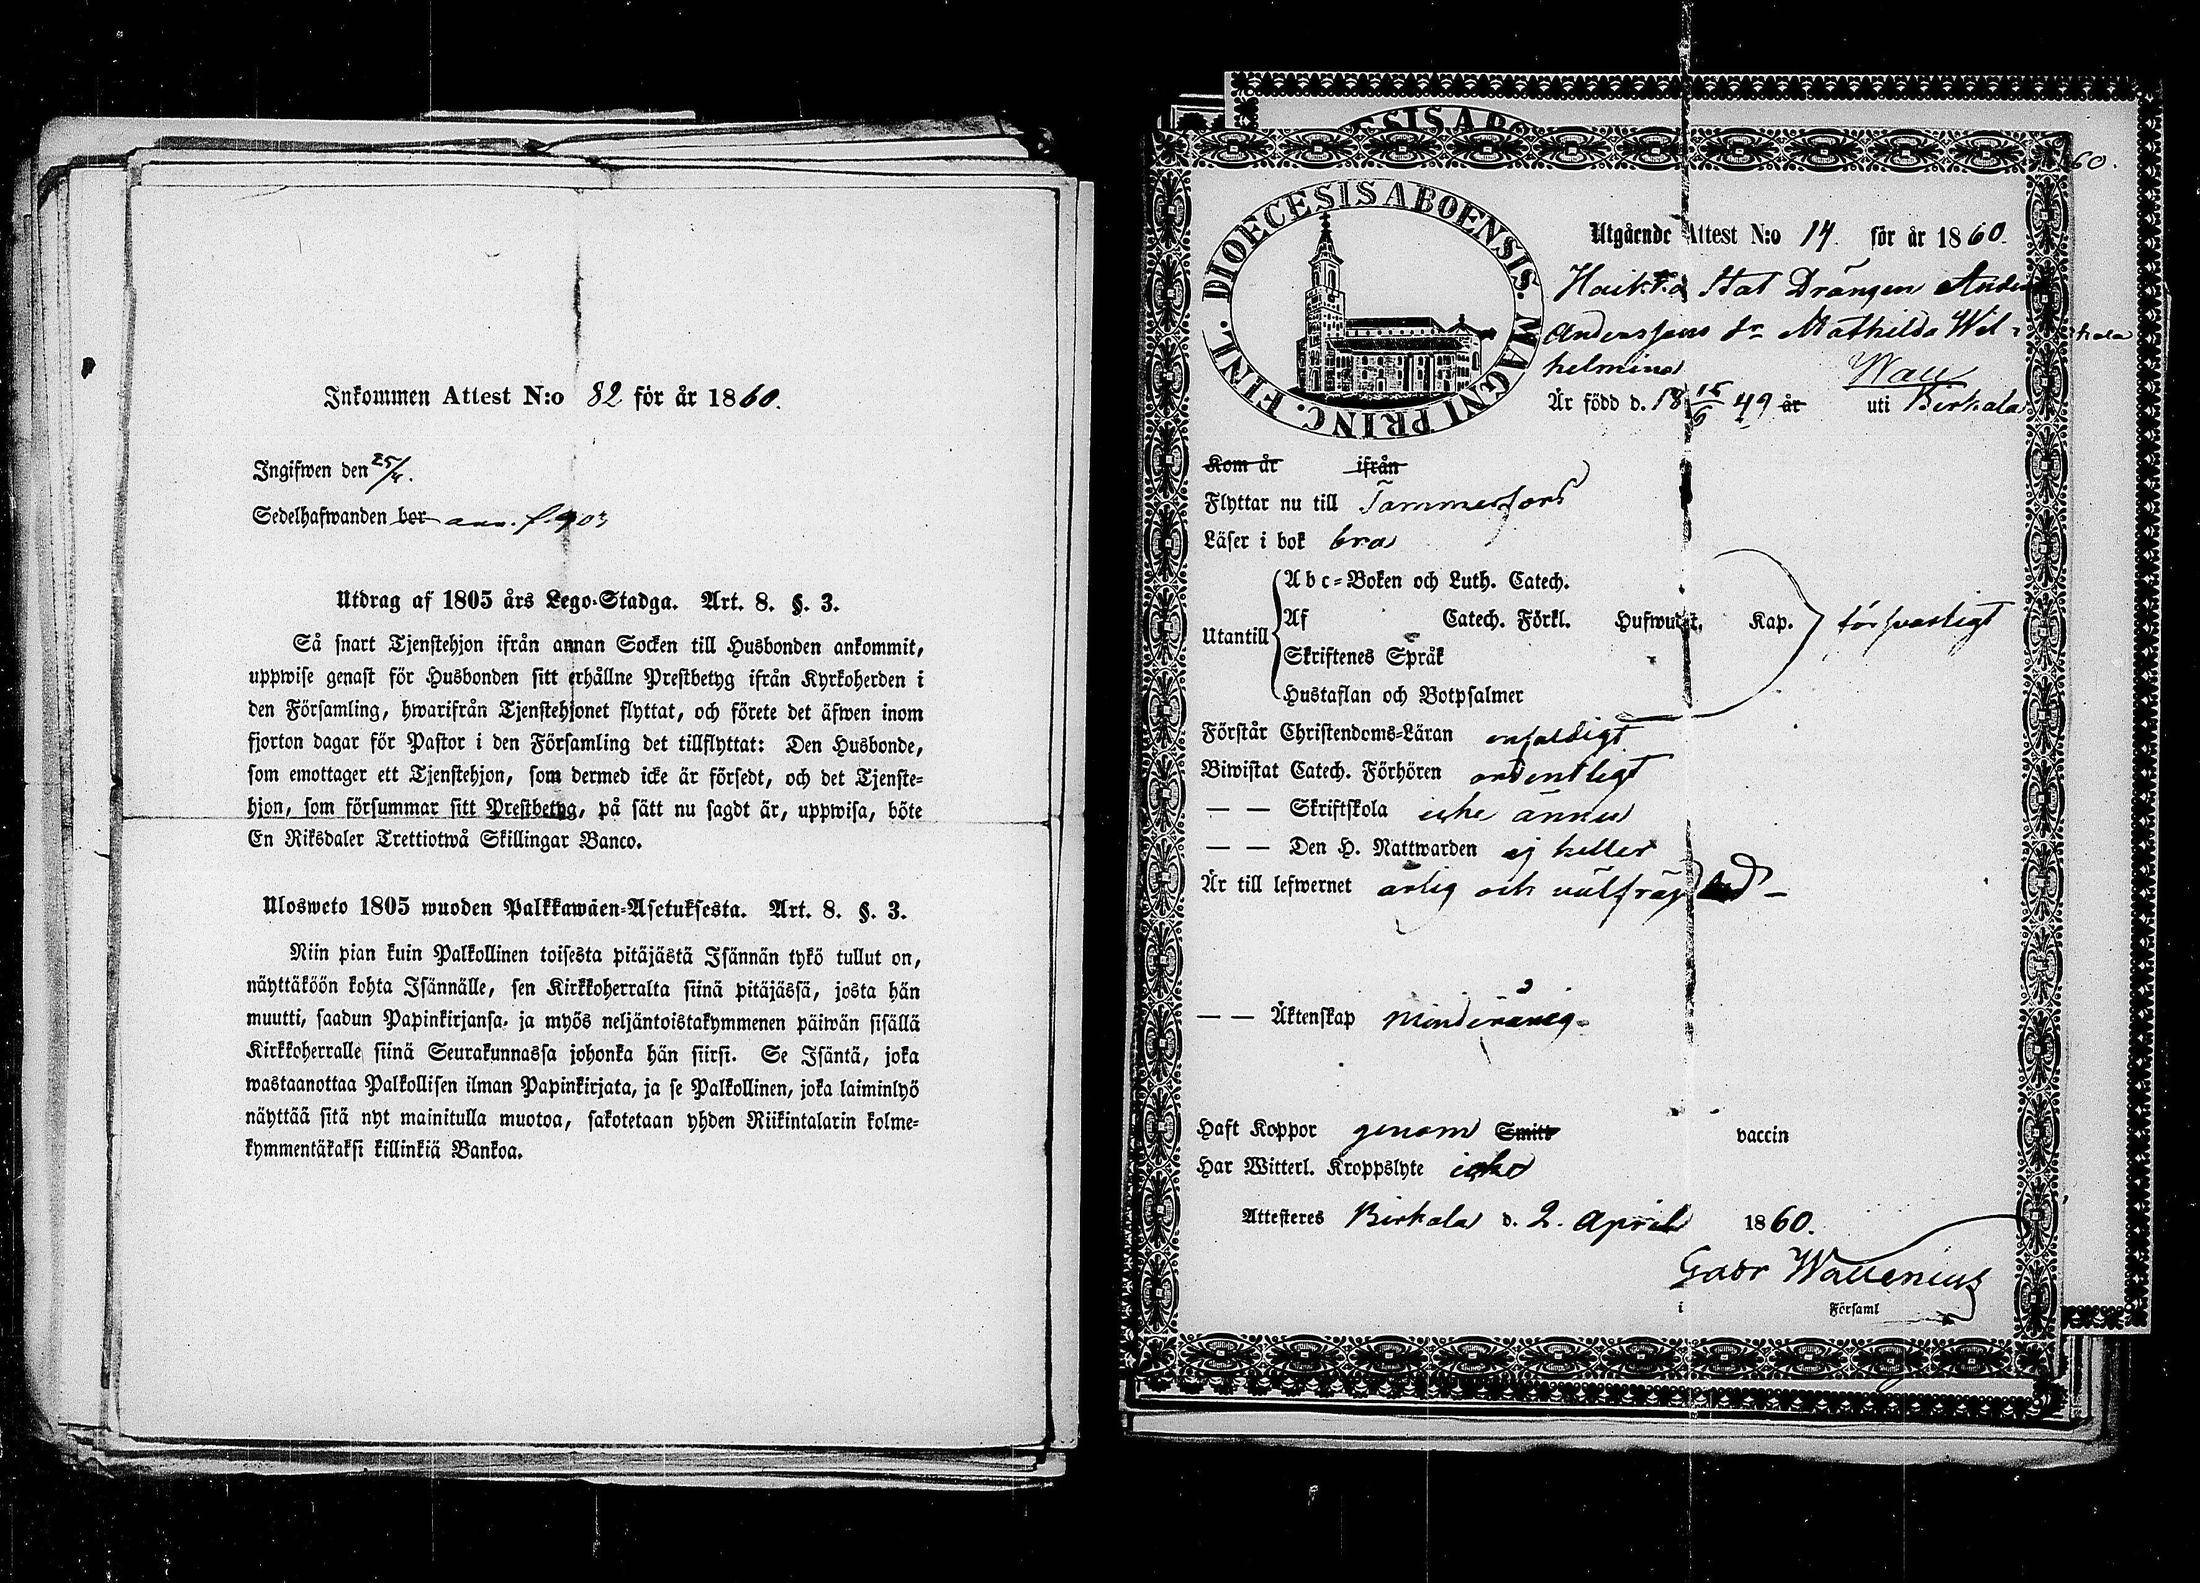 Inkommen Attest N:o 82 för år 1860.
Ingifwen den 25/4.
Sedelhafwanden bor ann. f. 903
Utdrag af 1805 års Lego-Stadga. Art. 8. §. 3.
Så snart Tjenstehjon ifrån annan Socken till Husbonden ankommit,
uppwise genast för Husbonden sitt erhållne Prestbetyg ifrån Kyrkoherden i
den Församling, hwarifrån Tjenstehjonet flyttat, och förete det äfwen inom
fjorton dagar för Pastor i den Församling det tillflyttat: Den Husbonde,
som emottager ett Tjenstehjon, som dermed icke är försedt, och det Tjenste-
hjon, som försummar sitt Prestbetyg, på sätt nu sagdt är, uppwisa, böte
En Riksdaler Trettiotwå Skillingar Banco.
Ulosweto 1805 wuoden Palkkawäen-Asetuksesta. Art. 8. §. 3.
Niin pian kuin Palkollinen toisesta pitäjästä Isännän tykö tullut on,
näyttäköön kohta Isännälle, sen Kirkkoherralta siinä pitäjässä, josta hän
muutti, saadun Papinkirjansa, ja myös neljäntoistakymmenen päiwän sisällä
Kirkkoherralle siinä Seurakunnassa johonka hän siirsi. Se Isäntä, joka
wastaanottaa Palkollisen ilman Papinkirjata, ja se Palkollinen, joka laiminlyö
näyttää sitä nyt mainitulla muotoa, sakotetaan yhden Riikintalarin kolme-
kymmentäkaksi killinkiä Bankoa.
ESIS ABO
60.
DIOECESIS ABOENSIS. MAGNI PRINC. FINL.
Utgående Attest N:o 14 för år 1860.
Haikka Stat Drängen Anders
Anderssons dr Mathilda Wil-
kala
helmina
Är född d. 18 15/6 49 år uti Birkala
Kom år ifrån
Flyttar nu till Tammerfors
Läser i bok bra
Utantill
Abc-Boken och Luth. Catech.
Af Catech. Förkl. Hufwudst. Kap. försvarligt
Skriftenes Språk
Hustaflan och Botpsalmer
Förstår Christendoms-Läran enfaldigt
Biwistat Catech. Förhören ordentligt
— — Skriftskola icke ännu
— — Den H. Nattwarden ej heller
Är till lefwernet ärlig och välfräjdad —
— — Äktenskap Minderårig
Haft Koppor genom Smitt vaccin
Har Witterl. Kroppslyte icke
Attesteres Birkala d. 2. April 1860.
Gabr Wallenius
i Församl